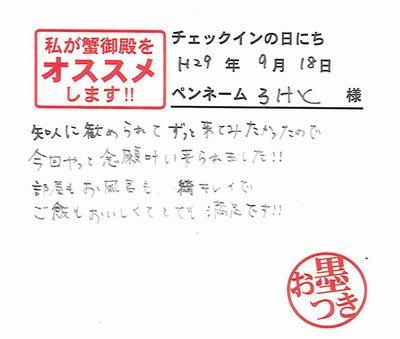 私が蟹御殿を
オススメ
します!!
チェックインの日にち
H29 年 9月 18日
ペンネーム 3HC 様
知人に勧められてずっと来てみたかったので
今回やっと念願叶い来られました!!
部屋もお風呂も、綺キレイで
ご飯もおいしくてとても満足です!!
お墨つき